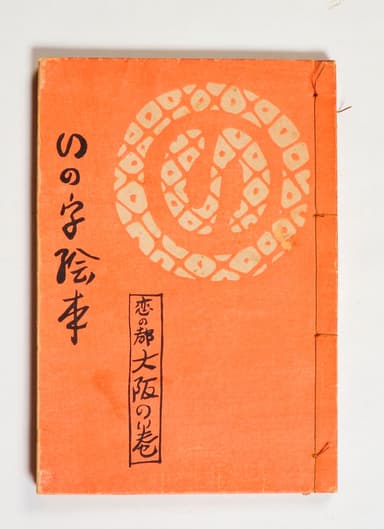 いの字絵本
い
恋の都 大阪の巻